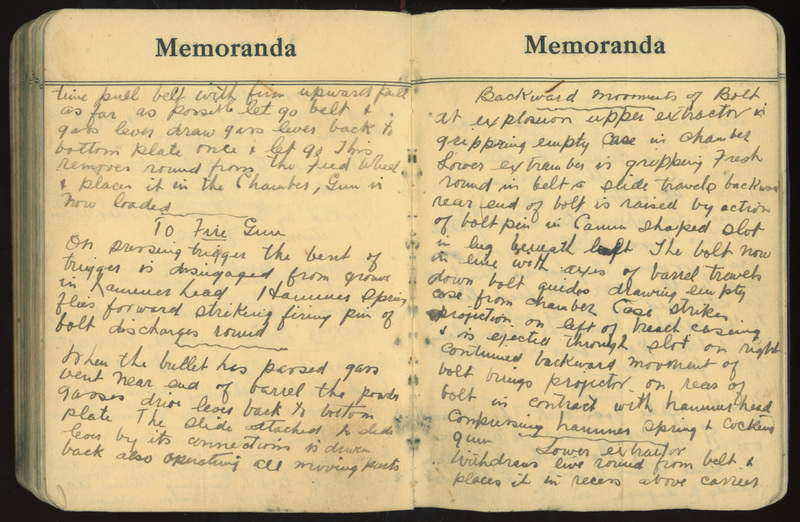 Memoranda
time pull belt with firm upward pull
as far as possible let go belt &
gass lever draw gass lever back to
bottom plate once & let go This
removes round from the Feed Wheel
& places it in the Chamber, Gun is
now loaded
To Fire Gun
On pressing trigger the bent of
trigger is disengaged from groove
in hammer head Hammer Spring
flies forward striking firing pin of
bolt discharges round
When the bullet has passed gass
vent near end of barrel the powder
gasses drive lever back to bottom
plate The slide attached to slide
lever by its connections is driven
back also operating all moving parts
Memoranda
Backward movments of Bolt
at explosion upper extractor is
gripping empty Case in chamber
Lower extractor is gripping Fresh
round in belt a slide travels backward
rear end of bolt is raised by action
of bolt pin in Camm shaped slot
in lug beneath The bolt now
in line with axes of barrel travels
down bolt guides drawing empty
case from chamber Case strikes
projection on left of breach caseing
& is ejected through slot on right
continued backward movment of
bolt brings projector on rear of
bolt in contract with hammerhead
Compressing hammer spring & Cocking
gun Lower extractor
Withdraws live round from belt &
places it in recess above carrier